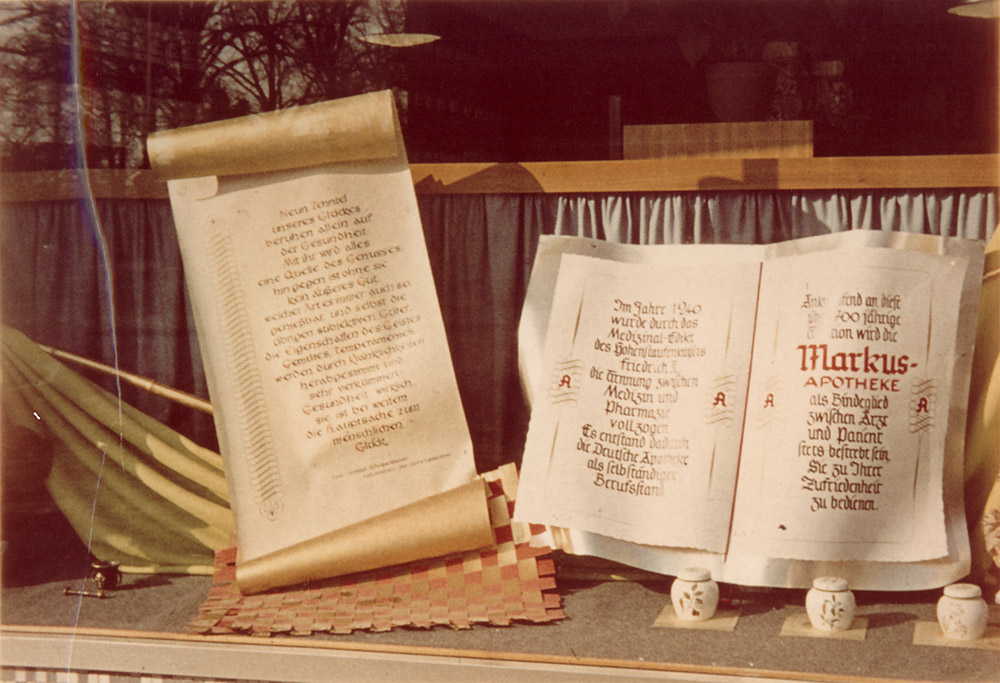 Neun Zehntel
unseres Glückes
beruhen allein auf
der Gesundheit.
Mit ihr wird alles
eine Quelle des Genusses:
hingegen ist ohne sie
kein äußeres Gut,
welcher Art es immer auch sei
genießbar, und selbst die
übrigen subjektiven Güter,
die Eigenschaften des Geistes
Gemütes, Temperamentes,
werden durch Kränklichkeiten
herabgestimmt und
sehr verkümmert.
Gesundheit, wirklich,
sie ist bei weitem
die Hauptsache zum
menschlichen
Glück.
Im Jahre 1940
wurde durch das
Medizinal-Edikt
des Hohenstaufenkaisers
Friedrich II.
die Trennung zwischen
Medizin und
Pharmazie
vollzogen.
Es entstand dadurch
die Deutsche Apotheke
als selbständiger
Berufsstand
A
A
an diese
700 jährige
wird die
Markus-
APOTHEKE
als Bindeglied
zwischen Arzt
und Patient
stets bestrebt sein,
Sie zu Ihrer
Zufriedenheit
zu bedienen.
A
A